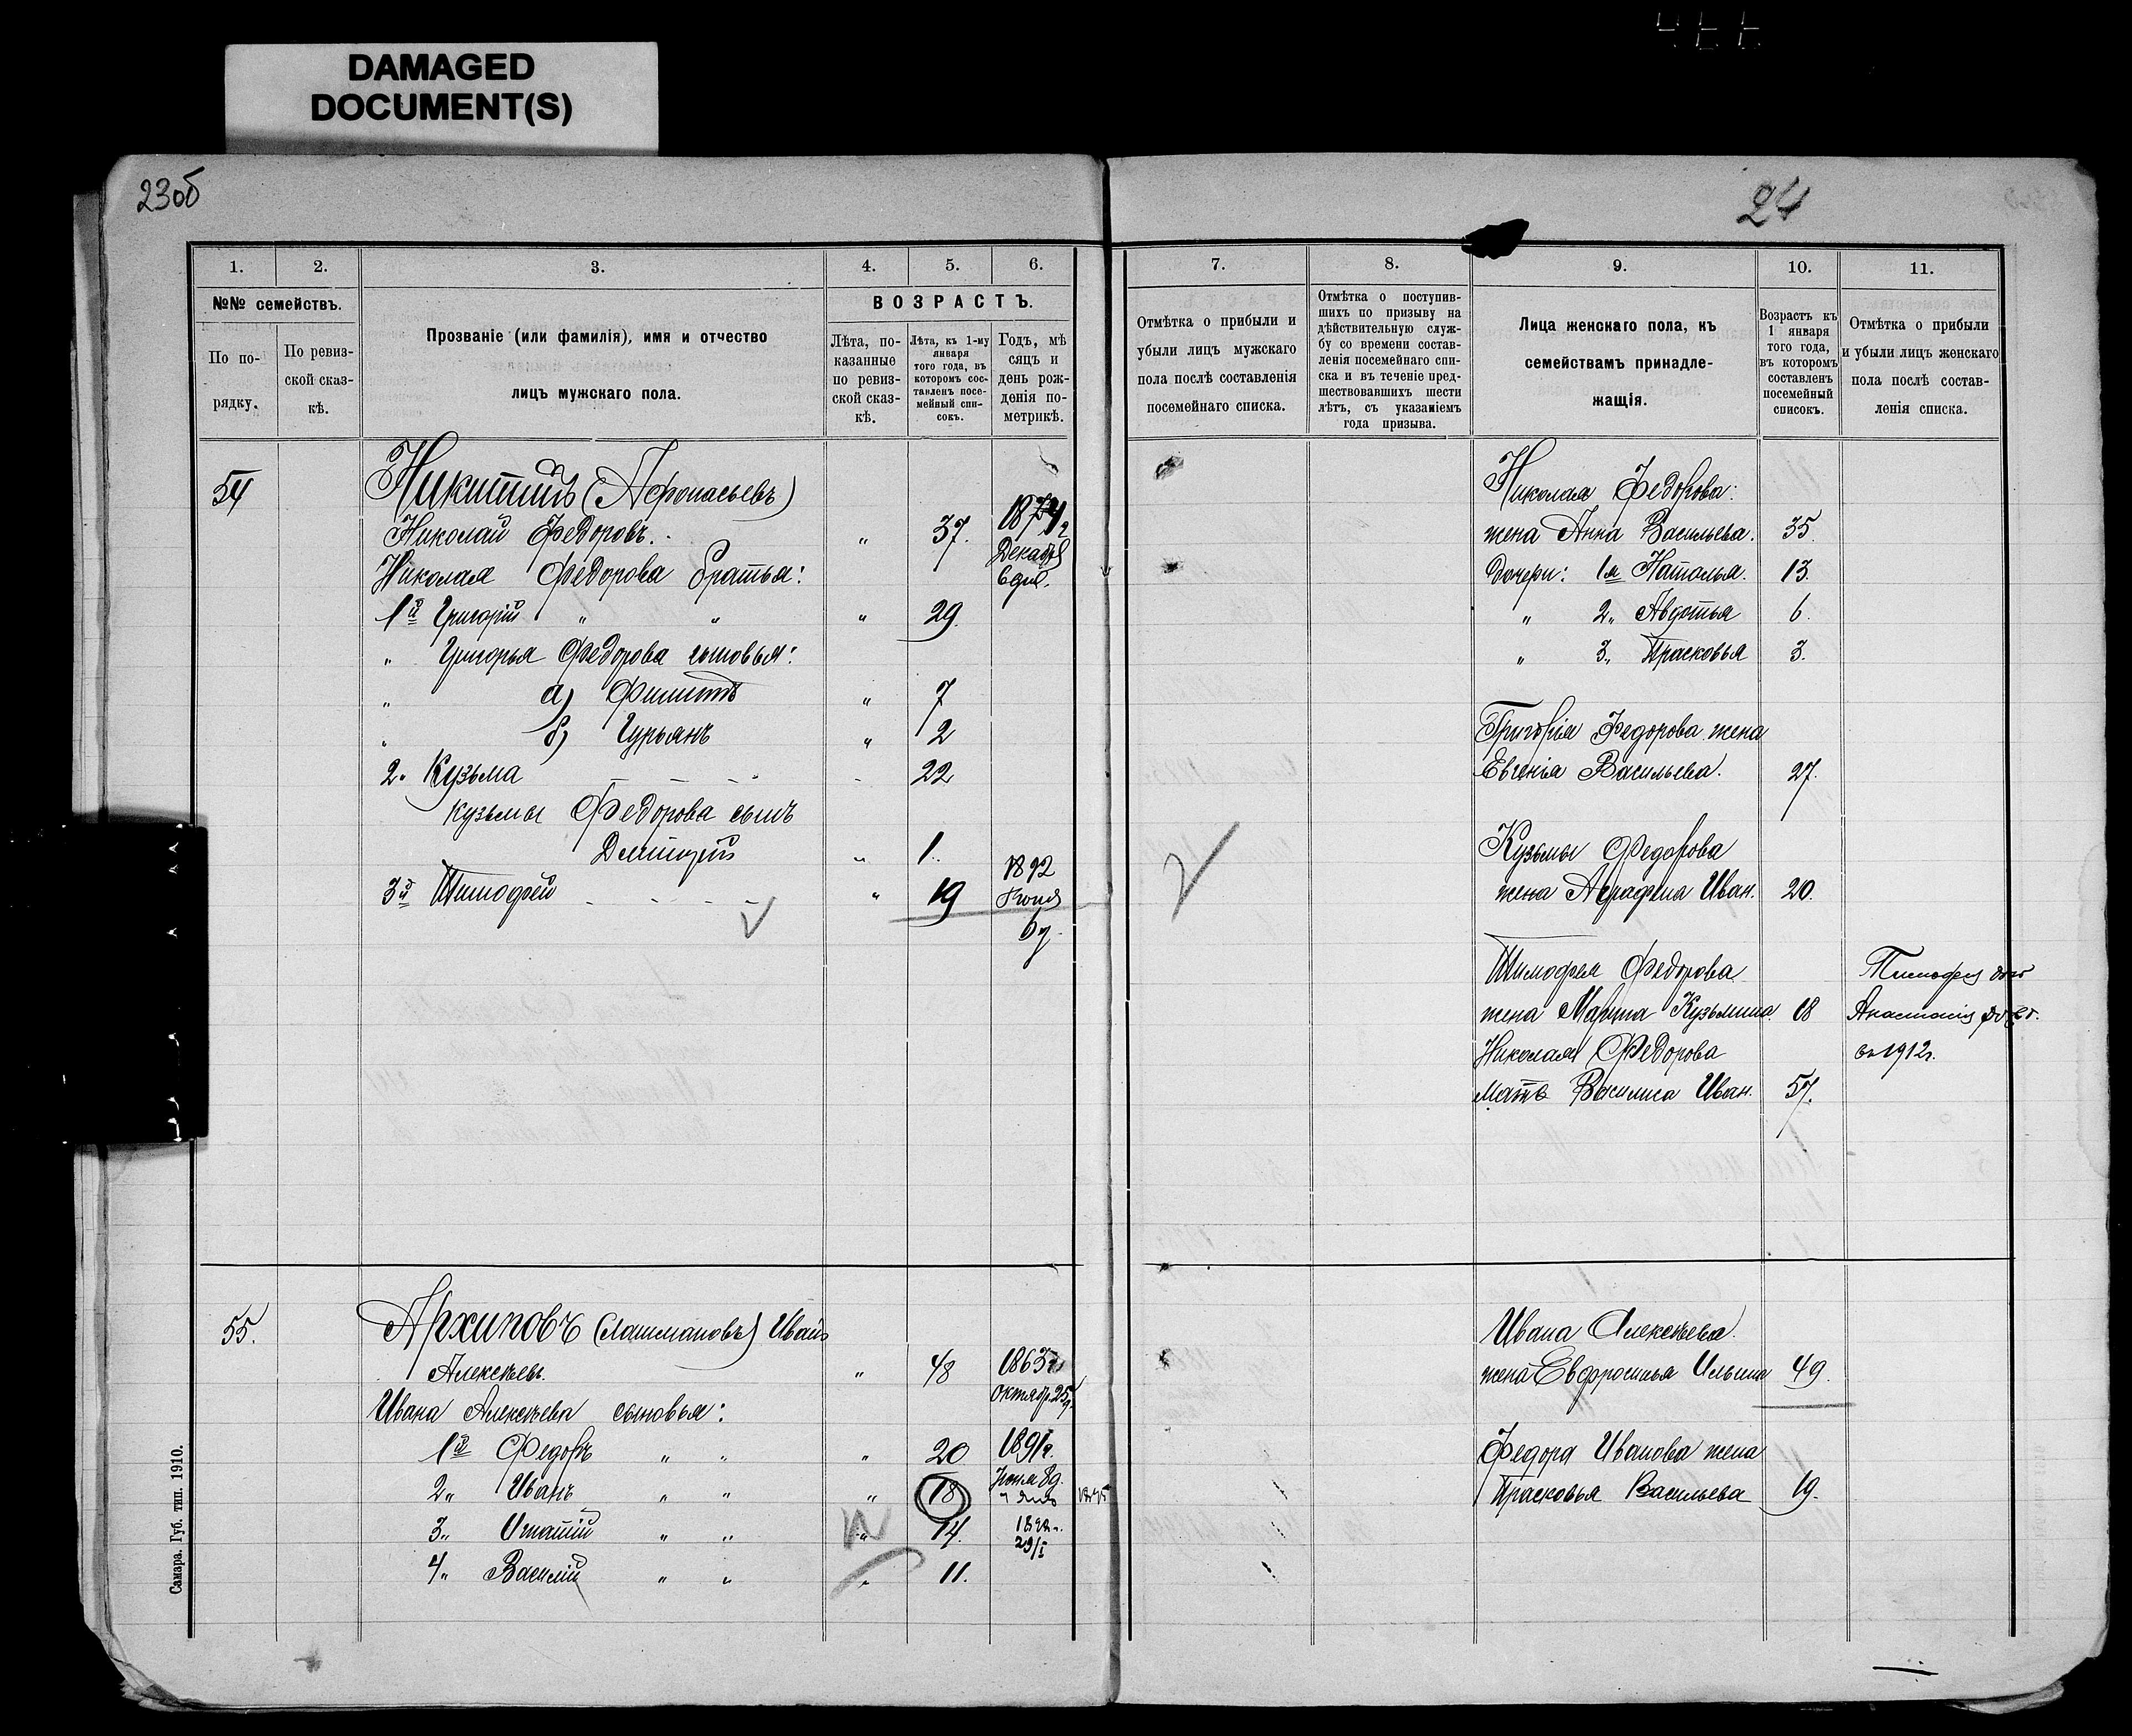 DAMAGED
DOCUMENT(S)
23об
24
1.
2.
3.
4.
5.
6.
7.
8.
9.
10.
11.
№№ семействъ.
По по-
рядку.
По ревиз-
ской сказ-
кѣ.
Прозваніе (или фамилія), имя и отчество
лицъ мужскаго пола.
ВОЗРАСТЪ.
Лѣта, по-
казанные
по ревиз-
ской сказ-
кѣ.
Лѣта, къ 1-му
января
того года, въ
которомъ сос-
тавленъ посе-
мейный спи-
сокъ.
Годъ, мѣ
сяцъ и
день рож-
денія по-
метрикѣ.
Отмѣтка о прибыли и
убыли лицъ мужскаго
пола послѣ составленія
посемейнаго списка.
Отмѣтка о поступив-
шихъ по призыву на
дѣйствительную служ-
бу со времени состав-
ленія посемейнаго спи-
ска и въ теченіе пред-
шествовавшихъ шести
лѣтъ, съ указаніемъ
года призыва.
Лица женскаго пола, къ
семействамъ принадле-
жащія.
Возрастъ къ
1 января
того года,
въ которомъ
составленъ
посемейный
списокъ.
Отмѣтка о прибыли
и убыли лицъ женскаго
пола послѣ состав-
ленія списка.
54
Никитинъ (Афонасьевъ)
Николай Федоровъ. " 37.
Декабря
6 дня.
Николая Федорова братья:
1й Григорій " " " 29.
" Григорья Федорова сыновья:
" а) Филиппъ " 7
" б) Гурьянъ " 2
2. Кузьма 22
Кузьмы Федорова сынъ
Дмитрій " 1.
3й Тимофей " 19
1892
6 д.
Николая Федорова:
жена Анна Васильева. 35.
Дочери: 1я Наталья. 13.
" 2. Авдотья 6.
" 3. Прасковья 3.
Григорія Федорова жена
Евгенія Васильева. 27.
Кузьмы Федорова
жена Аграфена Иван. 20.
Тимофея Федорова
жена Марина Кузьмина. 18
Николая Федорова
мать Василиса Иван. 57.
Тимофея
Анастасія
въ 1912г.
55.
Архиповъ (Лашмановъ) Иванъ
Алексѣевъ. " 48
1863г.
Октября 25 д.
Ивана Алексѣева сыновья:
1й Федоръ " " " 20
1891г.
2. Иванъ " " " 18
Іюня 8д.
3. Игнатій " " " 14.
29/I
4. Василій " " " 11.
Ивана Алексѣева.
жена Евфросинья Ильина 49.
Федора Иванова жена
Прасковья Васильева 19.
Самара. Губ. тип. 1910.